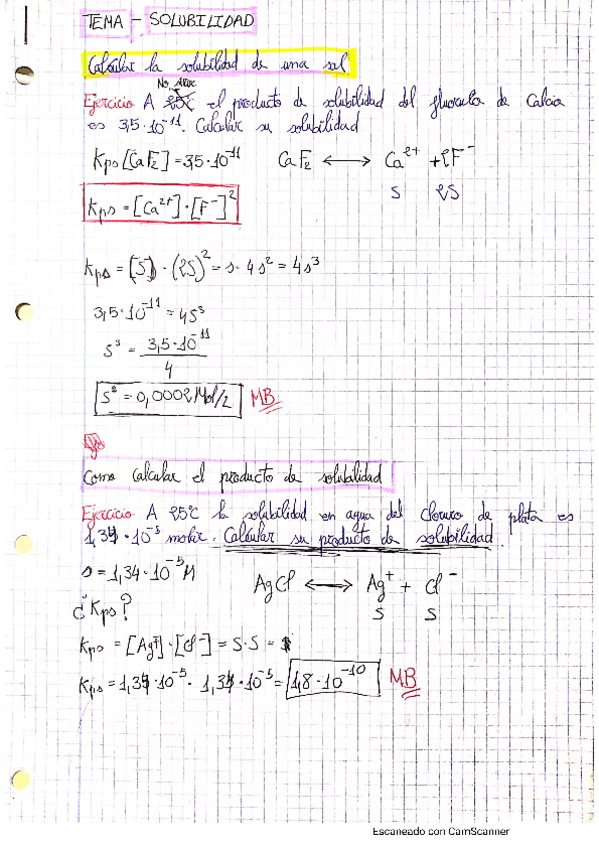 TEMA - SOLUBILIDAD
Calcular la solubilidad de una sal
No Afec
Ejercicio A 25℃ el producto de solubilidad del fluoruro de Calcio
es 3,5·10⁻¹¹. Calcular su solubilidad
Kps [CaF₂] = 3,5·10⁻¹¹ CaF₂ ⟷ Ca²⁺ + 2F⁻
S 2S
Kps = [Ca²⁺]·[F⁻]²
Kps = [S]·(2S)² = s·4s² = 4s³
3,5·10⁻¹¹ = 4S³
S³ = 3,5·10⁻¹¹ / 4
S³ = 0,0002 Mol/L MB
Como calcular el producto de solubilidad
Ejercicio A 25℃ la solubilidad en agua del cloruro de plata es
1,34·10⁻⁵ molar. Calcular su producto de solubilidad.
s = 1,34·10⁻⁵ M AgCl ⟷ Ag⁺ + Cl⁻
¿Kps? S S
Kps = [Ag⁺]·[Cl⁻] = S·S =
Kps = 1,34·10⁻⁵ · 1,34·10⁻⁵ = 1,8·10⁻¹⁰ MB
Escaneado con CamScanner